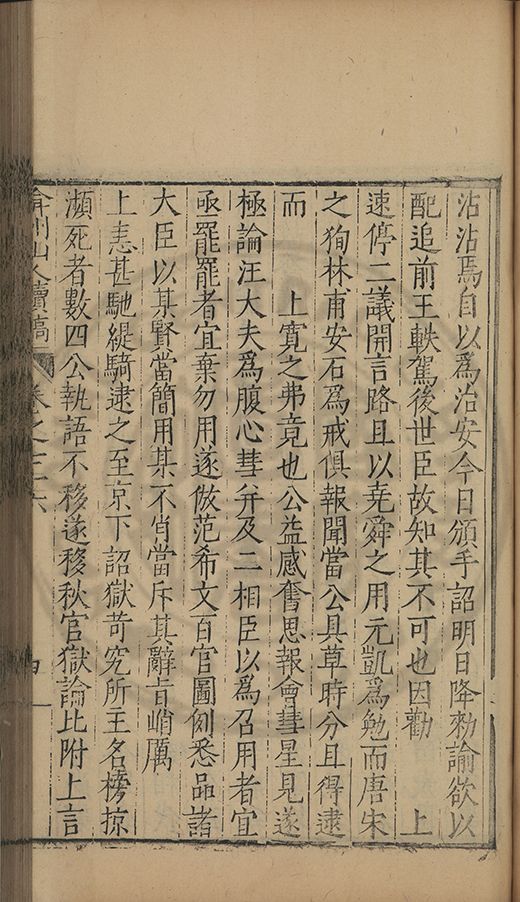 沾沾焉自以爲治安今日頒手詔明日降勑諭欲以
配追前王軼駕後世臣故知其不可也因勸　上
速停二議開言路且以堯舜之用元凱爲勉而唐宋
之狥林甫安石爲戒俱報聞當公具草時分且得逮
而　上寬之弗竟也公益感奮思報會彗星見遂
極論汪大夫爲腹心彗并及二相臣以爲召用者宜
亟罷罷者宜棄勿用遂倣范希文百官圖例悉品諸
大臣以某賢當簡用某不肖當斥其辭旨峭厲
上恚甚馳緹騎逮之至京下　詔獄苛究所主名搒掠
瀕死者數四公執語不移遂移秋官獄論比附上言
弇州山人續稿　卷之三六　四